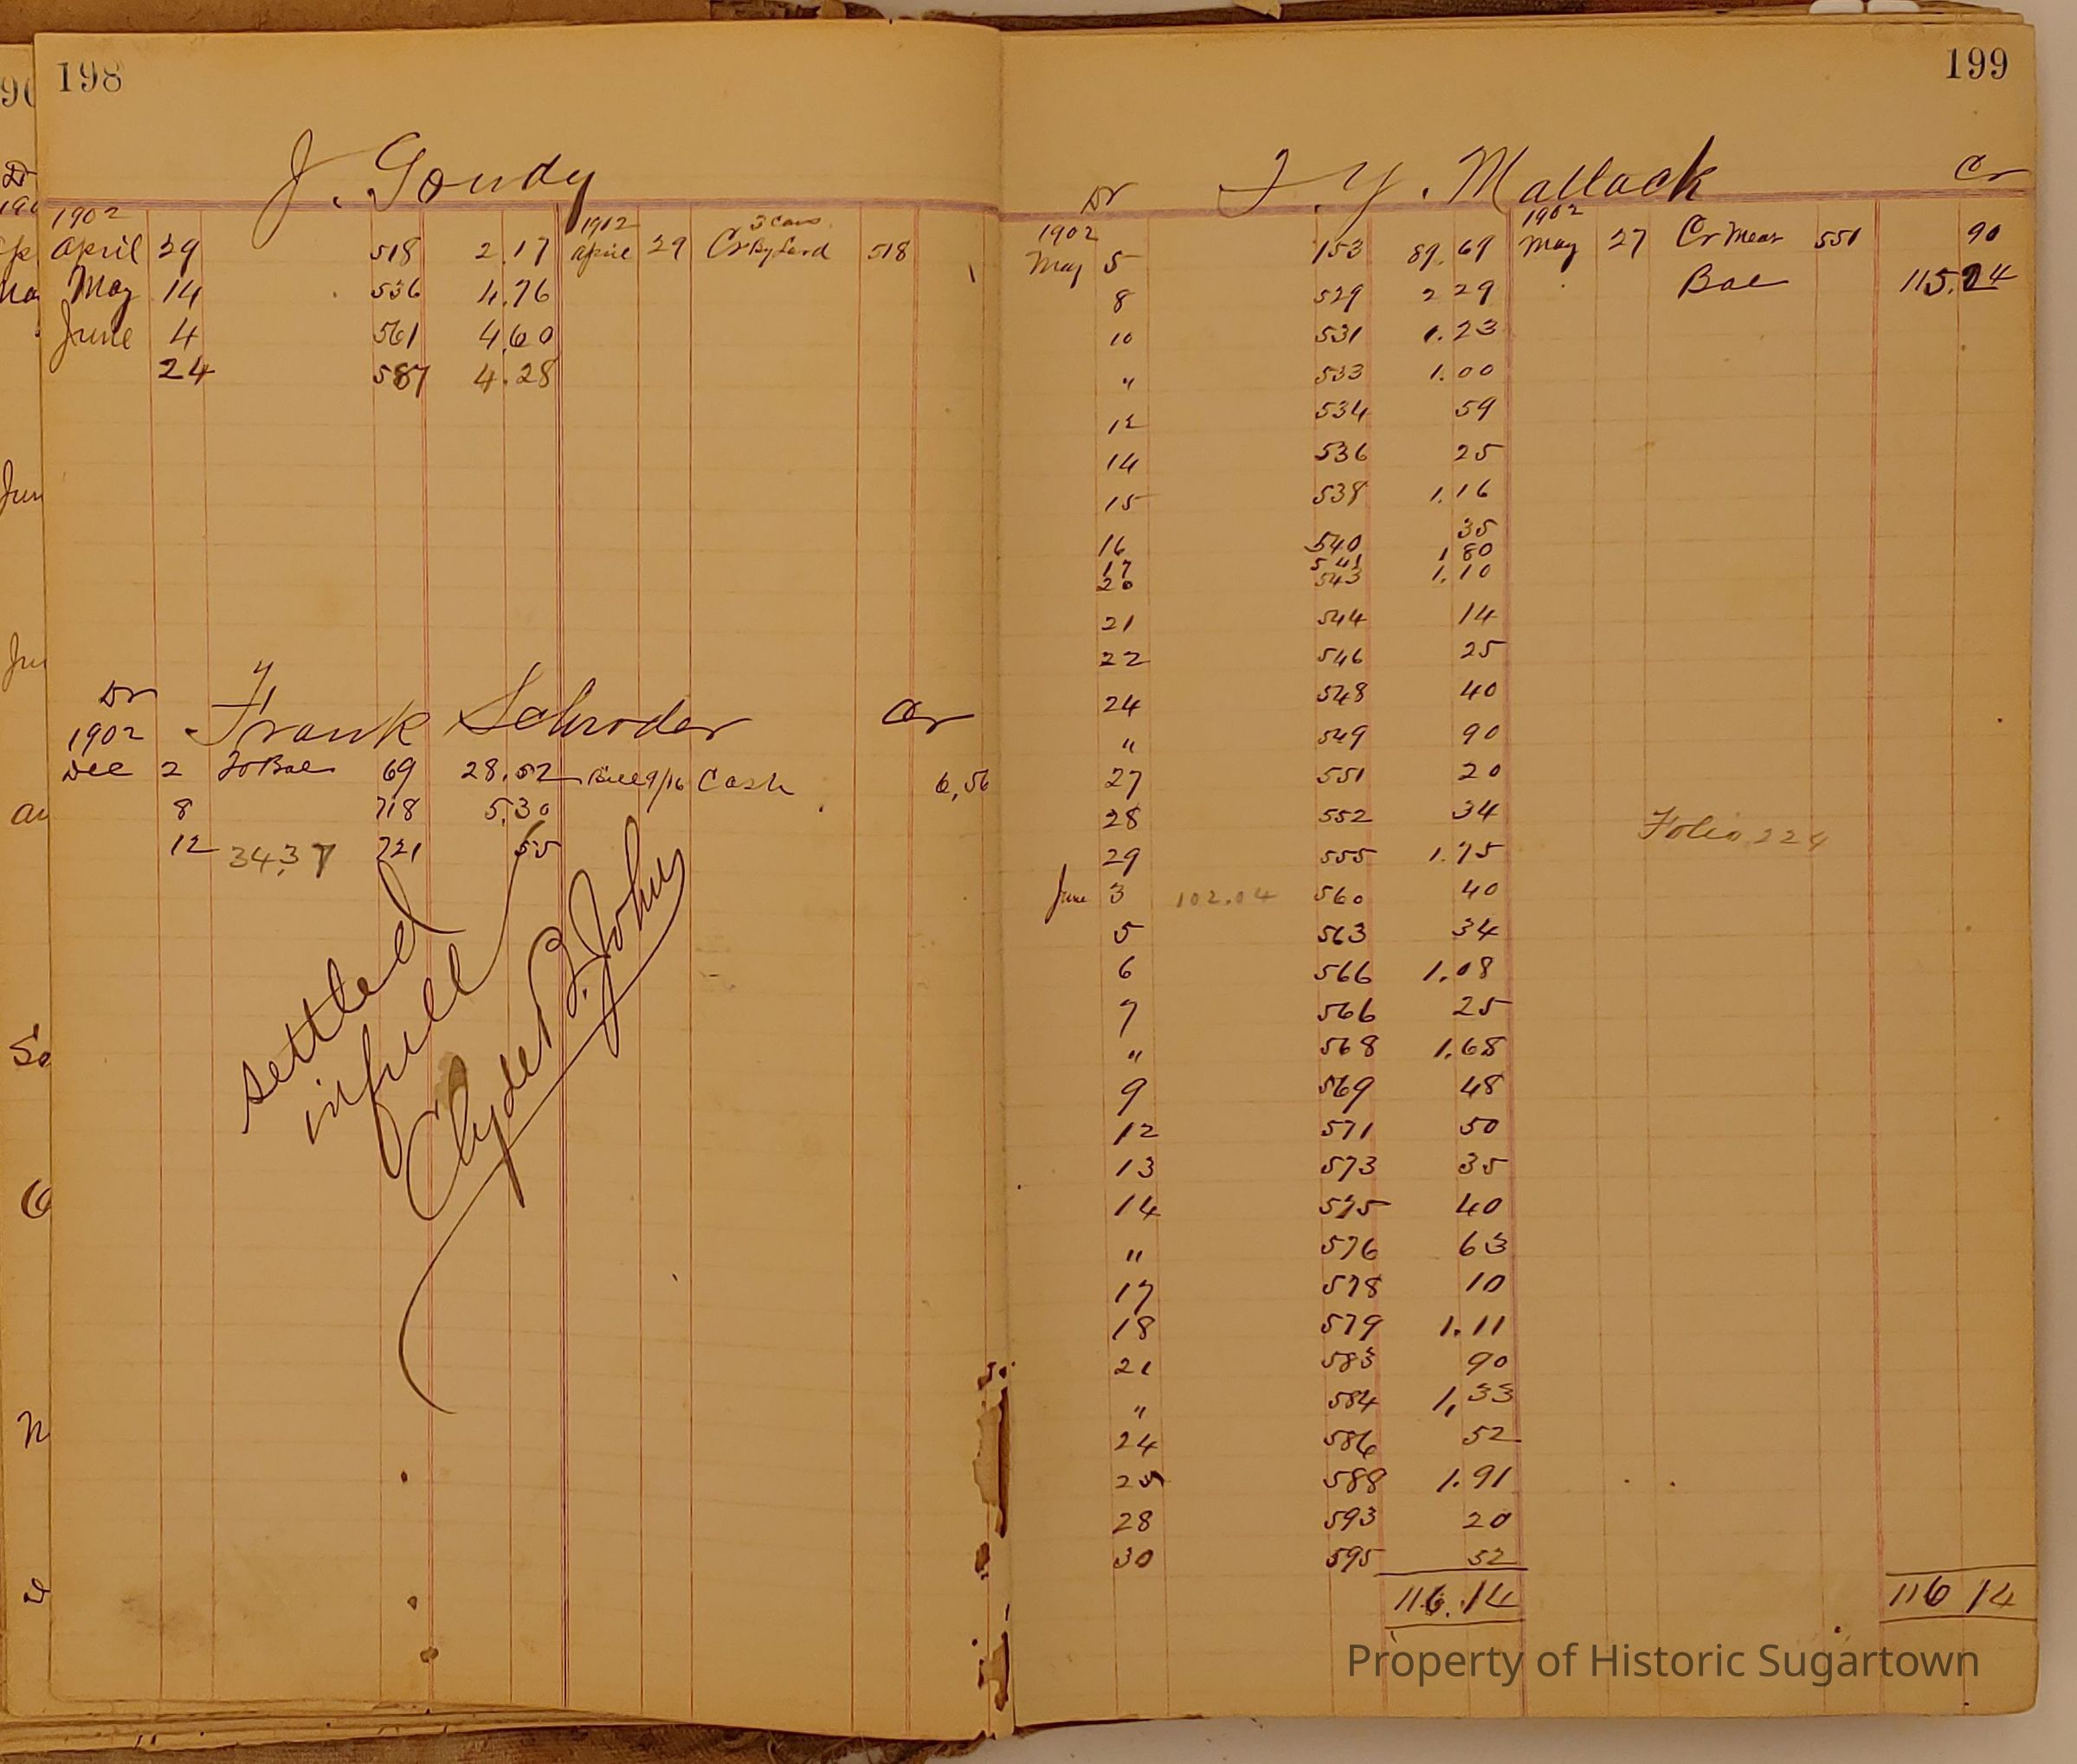 198
J. Goudy
1902 1902 3 Cans
April 29 518 2.17 April 29 Cr By Lard 518
May 14 536 4.76
June 4 561 4.60
24 587 4.28
Dr Frank Schroder Cr
1902
Dec 2 To Bal 69 28.52 9/16 Cash 6,56
8 718 5.30
12 34.37 721 55
settled
in full
Clyde B. Johns
199
Dr J. Y. Mallack Cr
1902 1902
May 5 153 89.69 May 27 Cr Meas 551 90
8 529 2 29 Bal 115.24
10 531 1.23
" 533 1.00
12 534 59
14 536 25
15 538 1.16
16 540 35
17 541 1 80
20 543 1.10
21 544 14
22 546 25
24 548 40
" 549 90
27 551 20
28 552 34 Folio 224
29 555 1.75
June 3 102.04 560 40
5 563 34
6 566 1.08
7 566 25
" 568 1.68
9 569 48
12 571 50
13 573 35
14 575 40
" 576 63
17 578 10
18 579 1.11
21 583 90
" 584 1,33
24 586 52
25 588 1.91
28 593 20
30 595 52
116.14 116 14
Property of Historic Sugartown